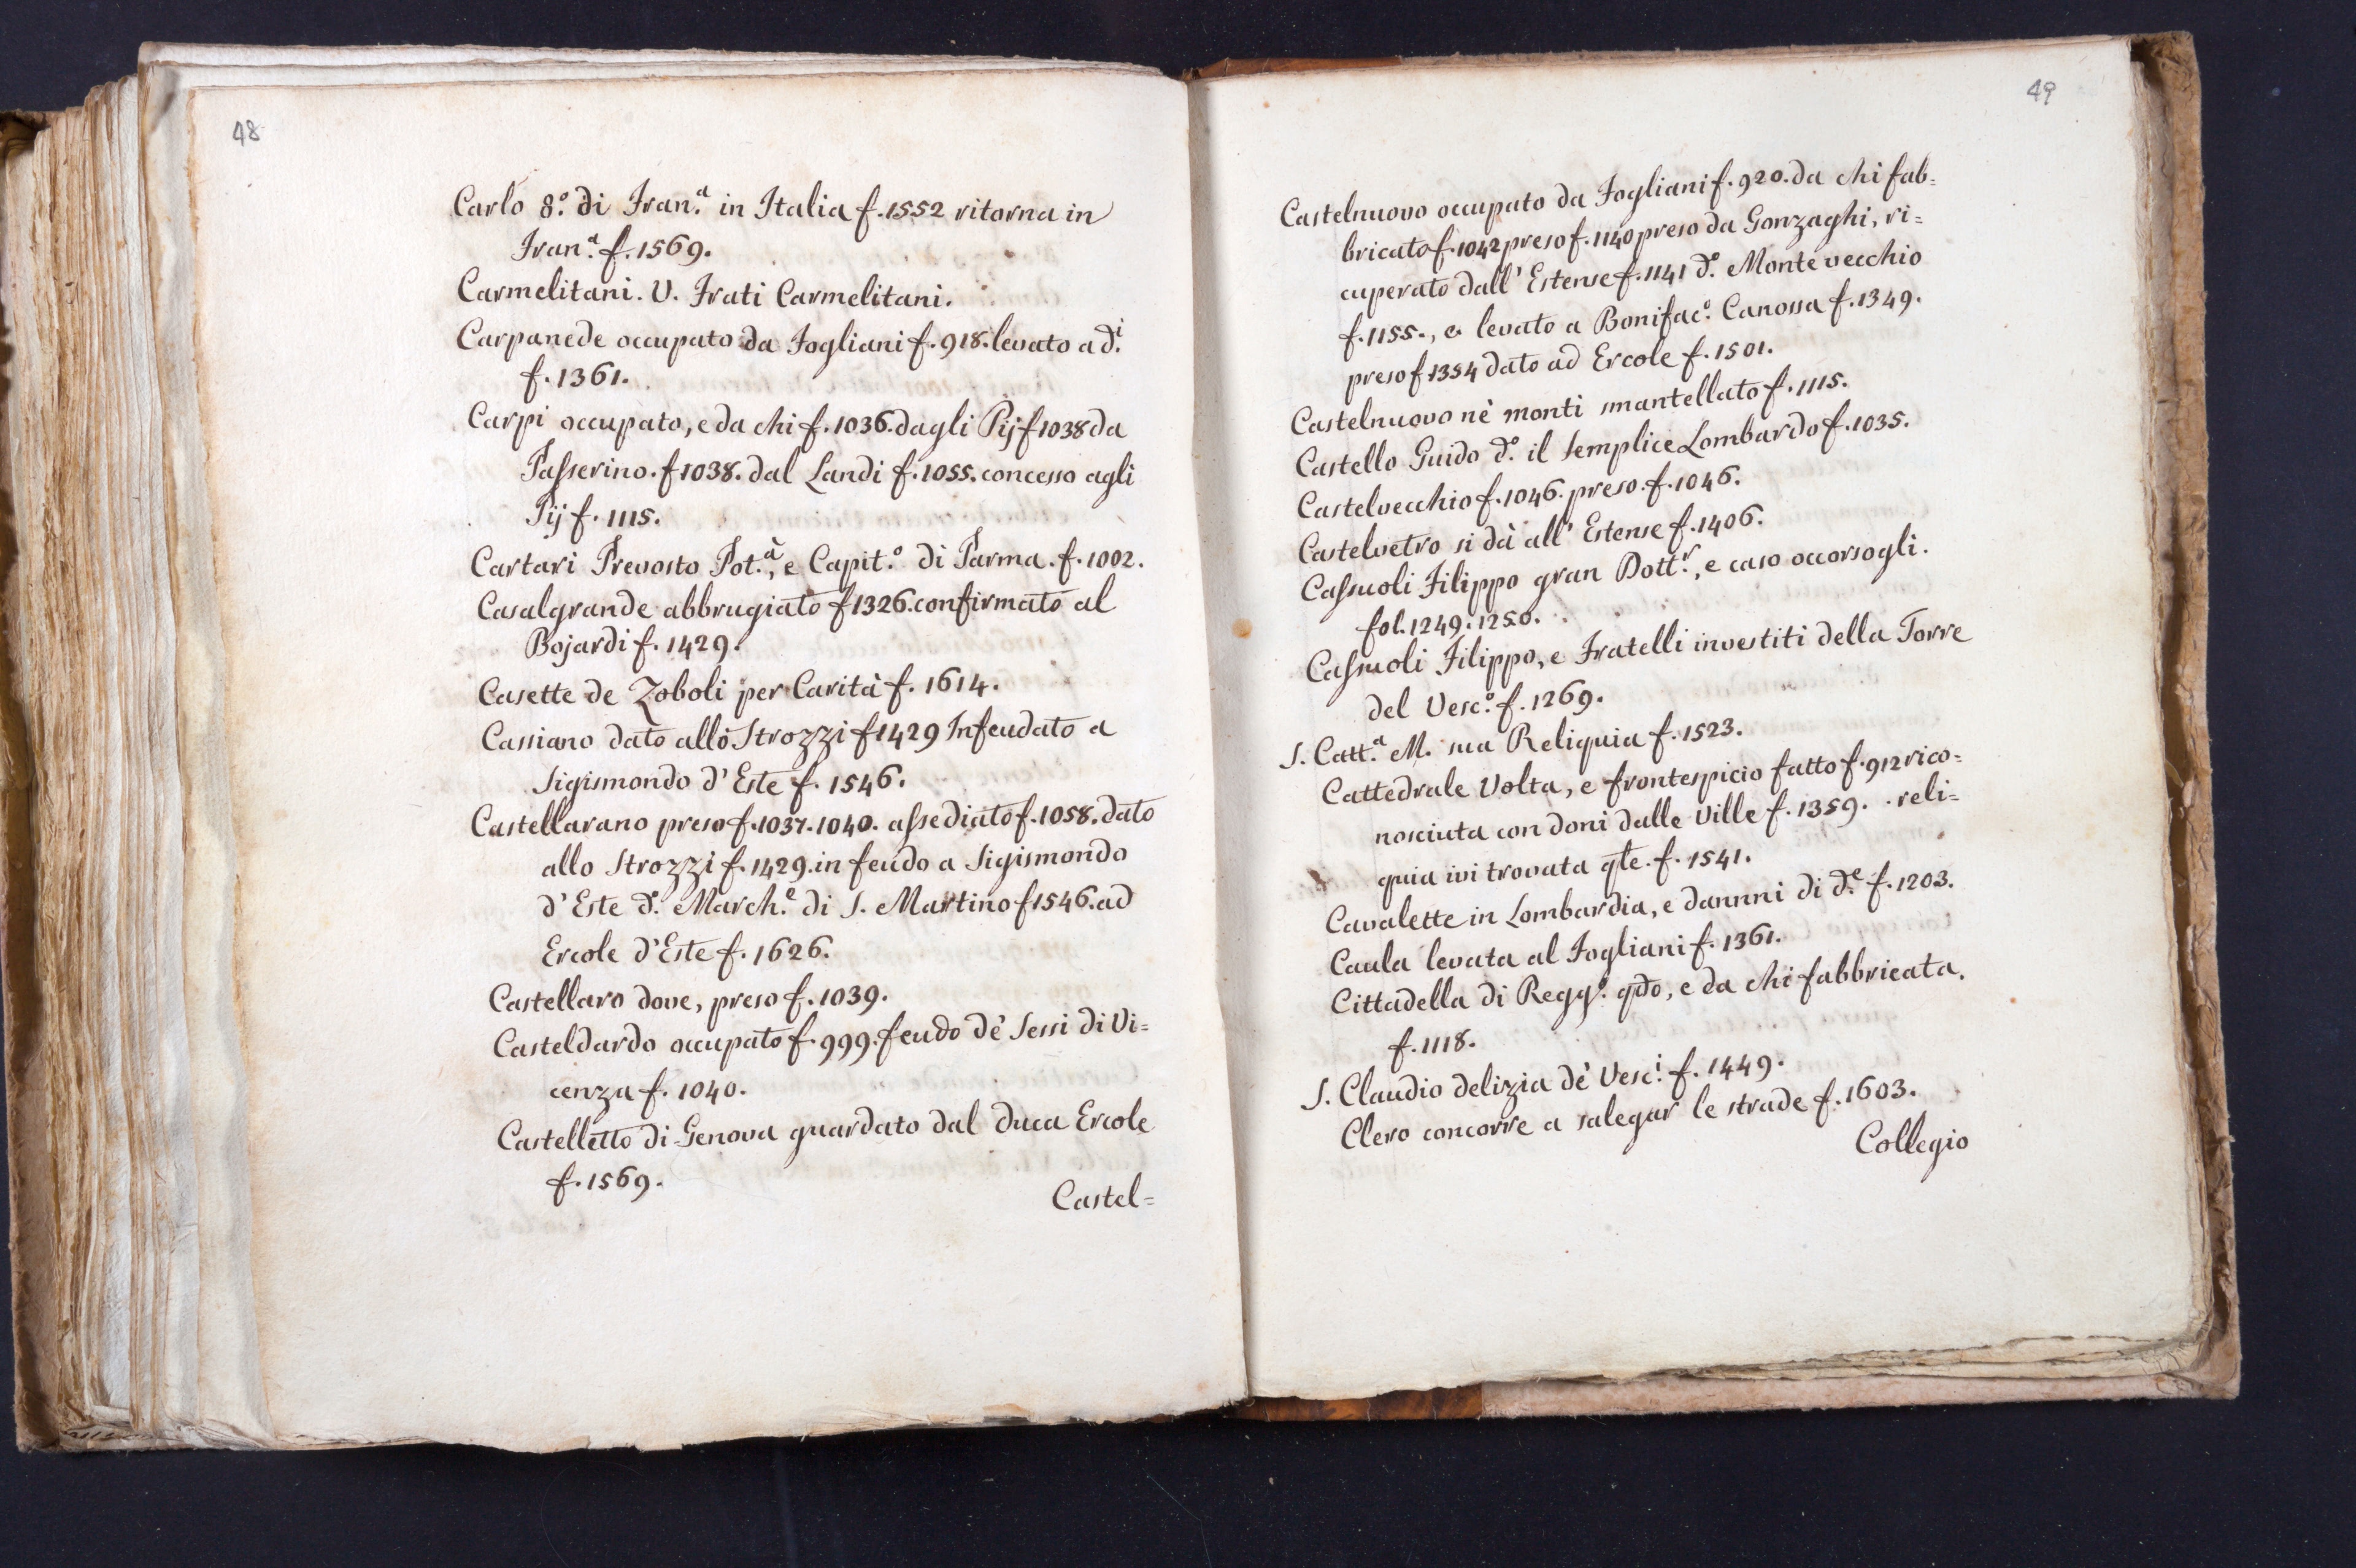 48
Carlo 8.º di Fran.ª in Italia f. 1552 ritorna in
Fran.ª f. 1569.
Carmelitani. V. Frati Carmelitani.
Carpanede occupato da Fogliani f. 918. levato a d.i
f. 1361.
Carpi occupato, e da chi f. 1036. dagli Pij f 1038 da
Passerino. f 1038. dal Landi f. 1055. concesso agli
Pij f. 1115.
Cartari Prevosto Pot.à, e Capit.º di Parma. f. 1002.
Casalgrande abbrugiato f 1326. confirmato al
Bojardi f. 1429.
Casette de Zoboli per Carità f. 1614.
Cassiano dato allo Strozzi f 1429 Infeudato a
Sigismondo d'Este f. 1546.
Castellarano preso f. 1037. 1040. assediato f. 1058. dato
allo Strozzi f. 1429. in feudo a Sigismondo
d'Este d.º March.e di S. Martino f 1546. ad
Ercole d'Este f. 1626.
Castellaro dove, preso f. 1039.
Casteldardo occupato f. 999. feudo dè Sessi di Vi=
cenza f. 1040.
Castelletto di Genova guardato dal Duca Ercole
f. 1569.
Castel=
49
Castelnuovo occupato da Fogliani f. 920. da chi fab=
bricato f. 1042 preso f. 1140 preso da Gonzaghi, ri=
cuperato dall' Estense f. 1141 d.º Monte vecchio
f. 1155., e levato a Bonifac.º Canossa f. 1349.
preso f 1354 dato ad Ercole f. 1501.
Castelnuovo nè monti smantellato f. 1115.
Castello Guido d.º il semplice Lombardo f. 1035.
Castelvecchio f. 1046. preso. f. 1046.
Castelvetro si dà all' Estense f. 1406.
Cassuoli Filippo gran Dott.r, e caso occorsogli.
fol. 1249. 1250.
Cassuoli Filippo, e Fratelli investiti della Torre
del Vesc.º f. 1269.
S. Catt.ª M. sua Reliquia f. 1523.
Cattedrale Volta, e frontespicio fatto f. 912 rico=
nosciuta con doni dalle Ville f. 1359. reli=
quia ivi trovata qte. f. 1541.
Cavalette in Lombardia, e dannni di d.e f. 1203.
Caula levata al Fogliani f. 1361.
Cittadella di Regg.º qdo, e da chi fabbricata.
f. 1118.
S. Claudio delizia dè Vesc.i f. 1449.
Clero concorre a salegar le strade f. 1603.
Collegio